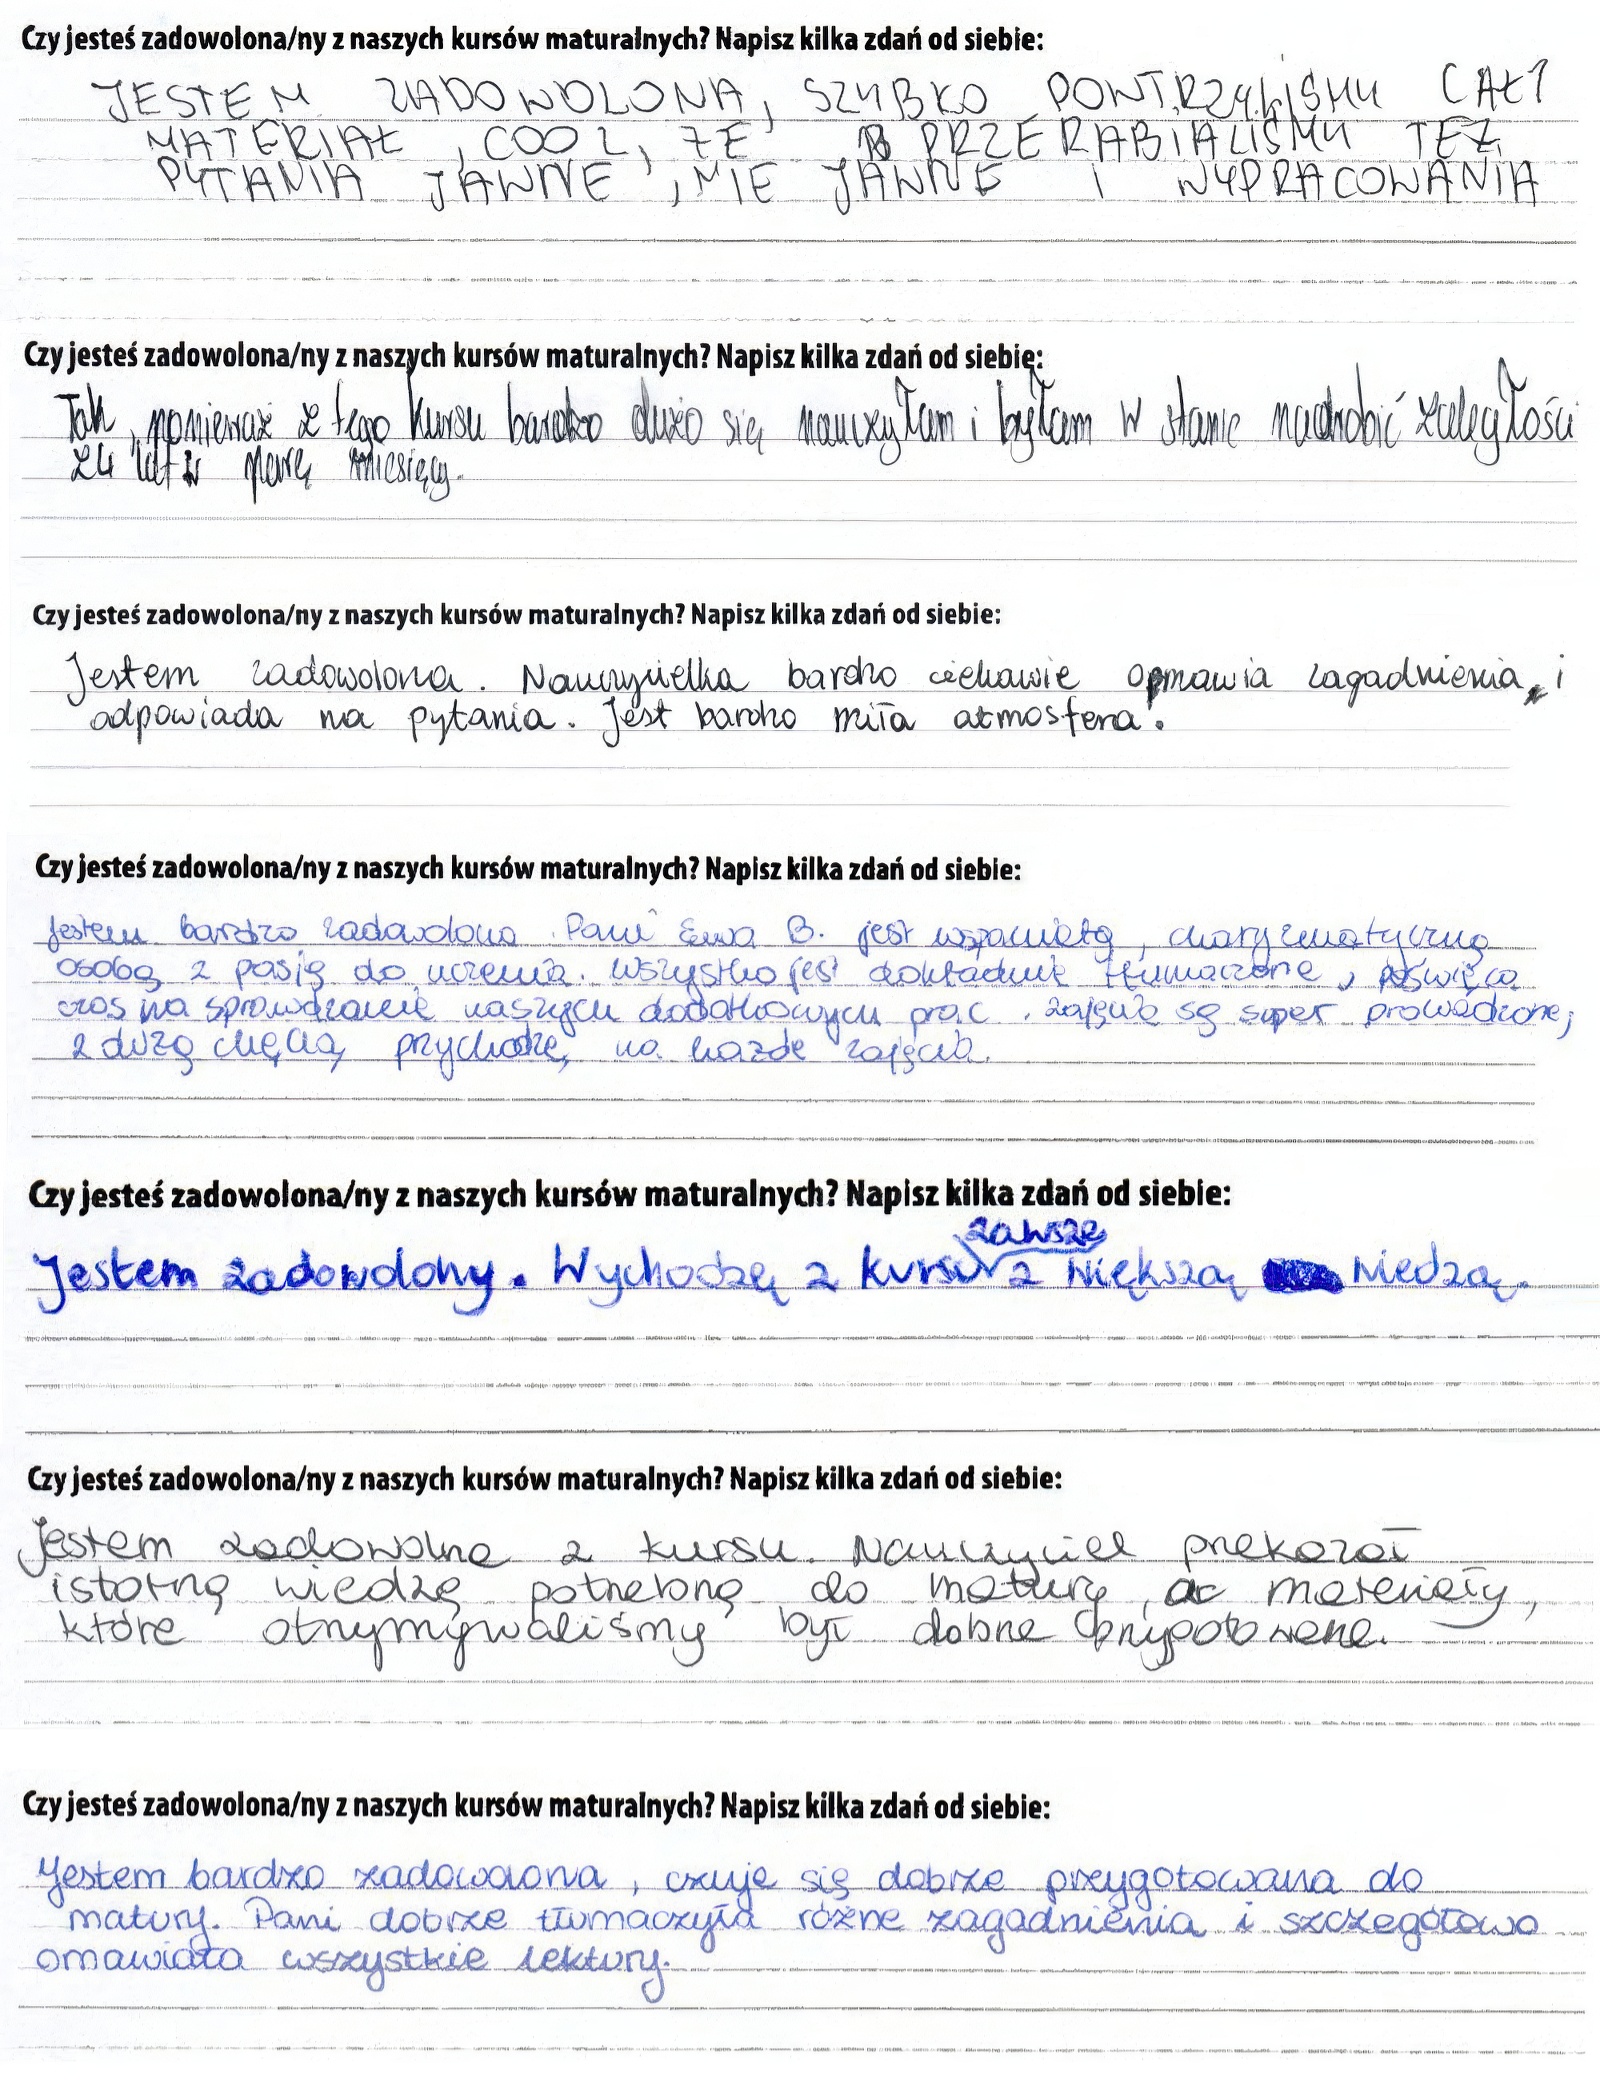 Czy jesteś zadowolona/ny z naszych kursów maturalnych? Napisz kilka zdań od siebie:
JESTEM ZADOWOLONA, SZYBKO POWTRZYLIŚMY CAŁY
MATERIAŁ, COOL, ŻE PRZERABIALIŚMY TEŻ
PYTANIA JAWNE, NIE JAWNE I WYPRACOWANIA
Czy jesteś zadowolona/ny z naszych kursów maturalnych? Napisz kilka zdań od siebie:
Tak, ponieważ z tego kursu bardzo dużo się nauczyłam i byłam w stanie nadrobić zaległości
z 4 lat w parę miesięcy.
Czy jesteś zadowolona/ny z naszych kursów maturalnych? Napisz kilka zdań od siebie:
Jestem zadowolona. Nauczycielka bardzo ciekawie opmawia zagadnienia i
odpowiada na pytania. Jest bardzo miła atmosfera.
Czy jesteś zadowolona/ny z naszych kursów maturalnych? Napisz kilka zdań od siebie:
Jestem bardzo zadowolona. Pani Ewa B. jest wspaniałą, charyzmatyczną
osobą z pasją do uczenia. Wszystko jest dokładnie tłumaczone, poświęca
czas na sprawdzanie naszych dodatkowych prac. Zajęcia są super prowadzone;
z dużą chęcią przychodzę na każde zajęcia.
Czy jesteś zadowolona/ny z naszych kursów maturalnych? Napisz kilka zdań od siebie:
zawsze
Jestem zadowolony. Wychodzę z kursu z większą wiedzą.
Czy jesteś zadowolona/ny z naszych kursów maturalnych? Napisz kilka zdań od siebie:
Jestem zadowolna z kursu. Nauczyciel przekazał
istotną wiedzę potrzebną do matury, a materiały,
które otrzymywaliśmy był dobrze przygotowane.
Czy jesteś zadowolona/ny z naszych kursów maturalnych? Napisz kilka zdań od siebie:
Jestem bardzo zadowolona, czuje się dobrze przygotowana do
matury. Pani dobrze tłumaczyła różne zagadnienia i szczegółowo
omawiała wszystkie lektury.